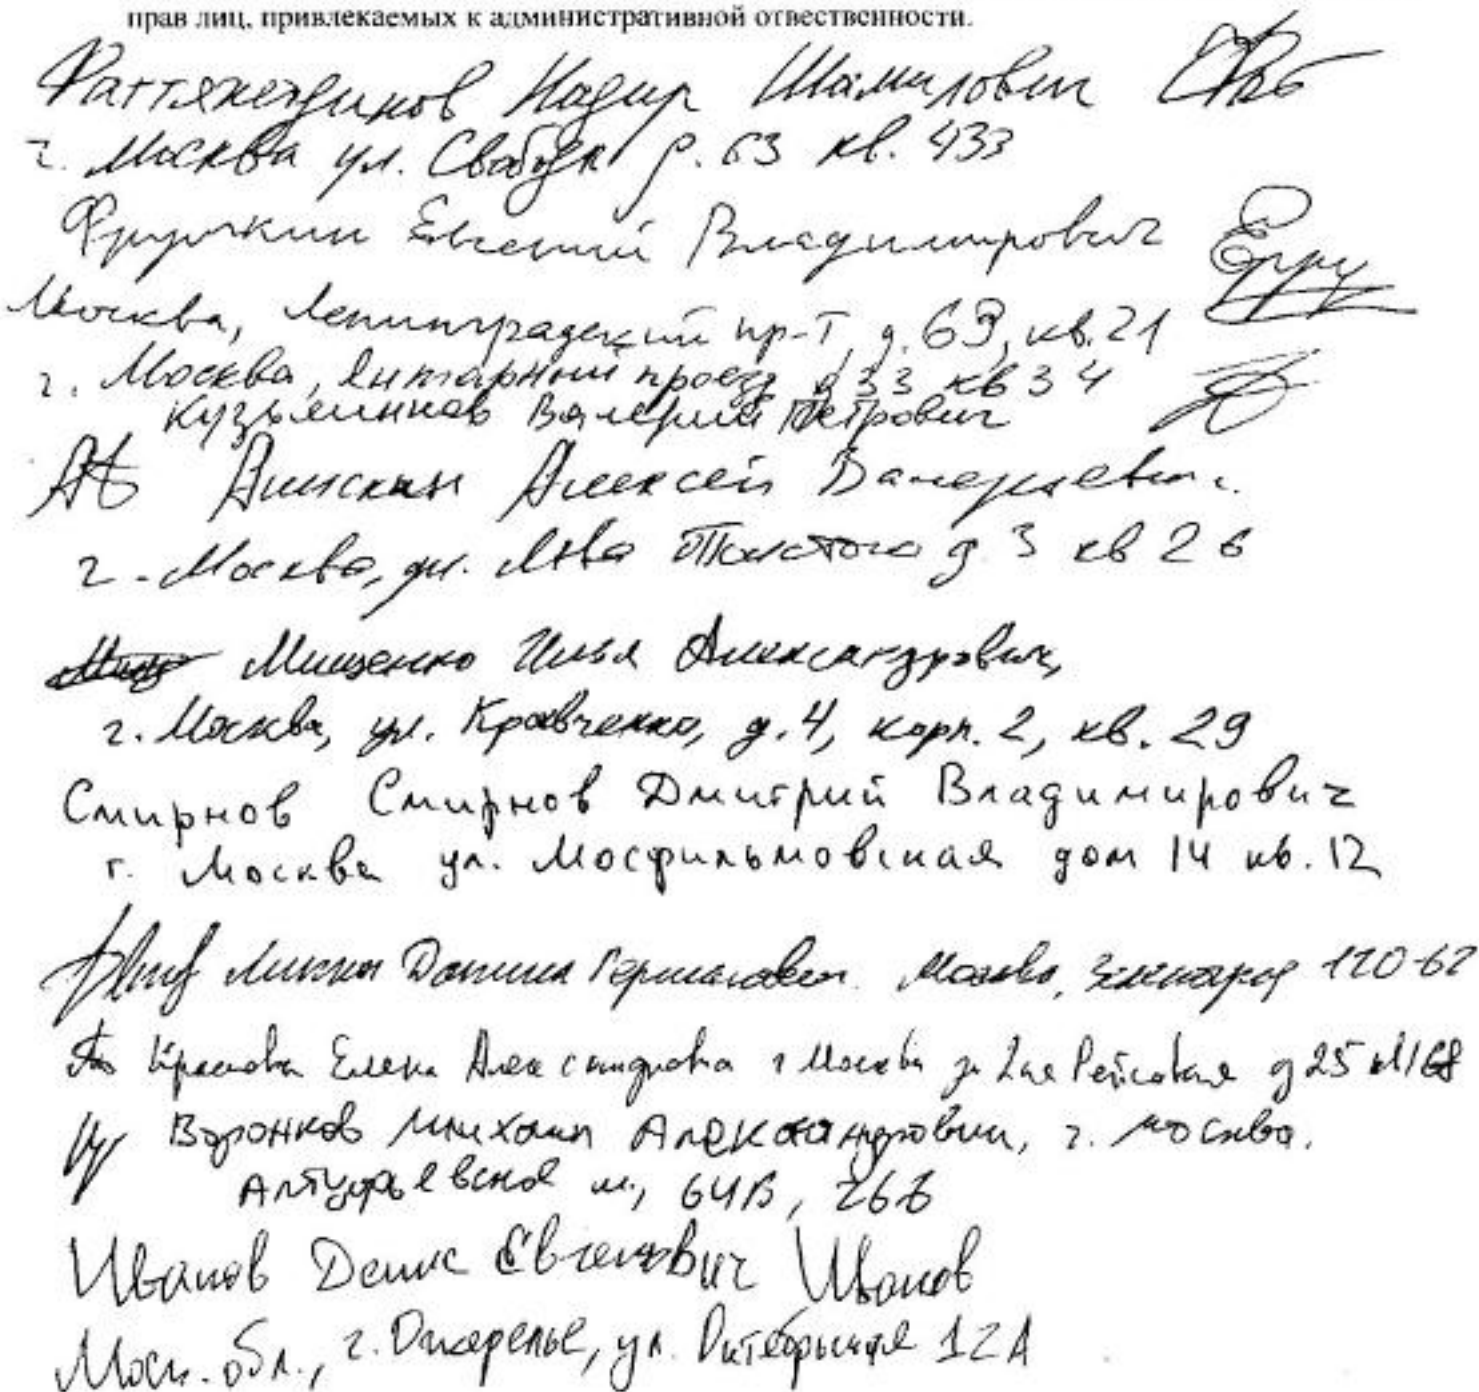 прав лиц, привлекаемых к административной отвественности.
Надир Шамилович
г. Москва ул. Свободы д. 63 кв. 433
Фрумкин Евгений Владимирович
Москва, Ленинградский пр-т, д. 63, кв. 21
г. Москва, Янтарный проезд д 33 кв 34
Кузьминов Валерий Петрович
Алексей Валерьевич.
г. Москва, ул. Льва Толстого д. 3 кв 26
Мищенко Илья Александрович,
г. Москва, ул. Кравченко, д. 4, корп. 2, кв. 29
Смирнов Смирнов Дмитрий Владимирович
г. Москва ул. Мосфильмовская дом 14 кв. 12
Германович. Москва, 120-62
Елена Александровна г Москва 2ая Рейсовая д 25
Воронков Михаил Александрович, г. Москва.
Алтуфьевское ш, 64В, 266
Иванов Денис Евгеньевич Иванов
Моск. обл., г. Ожерелье, ул. Октябрьская 12А